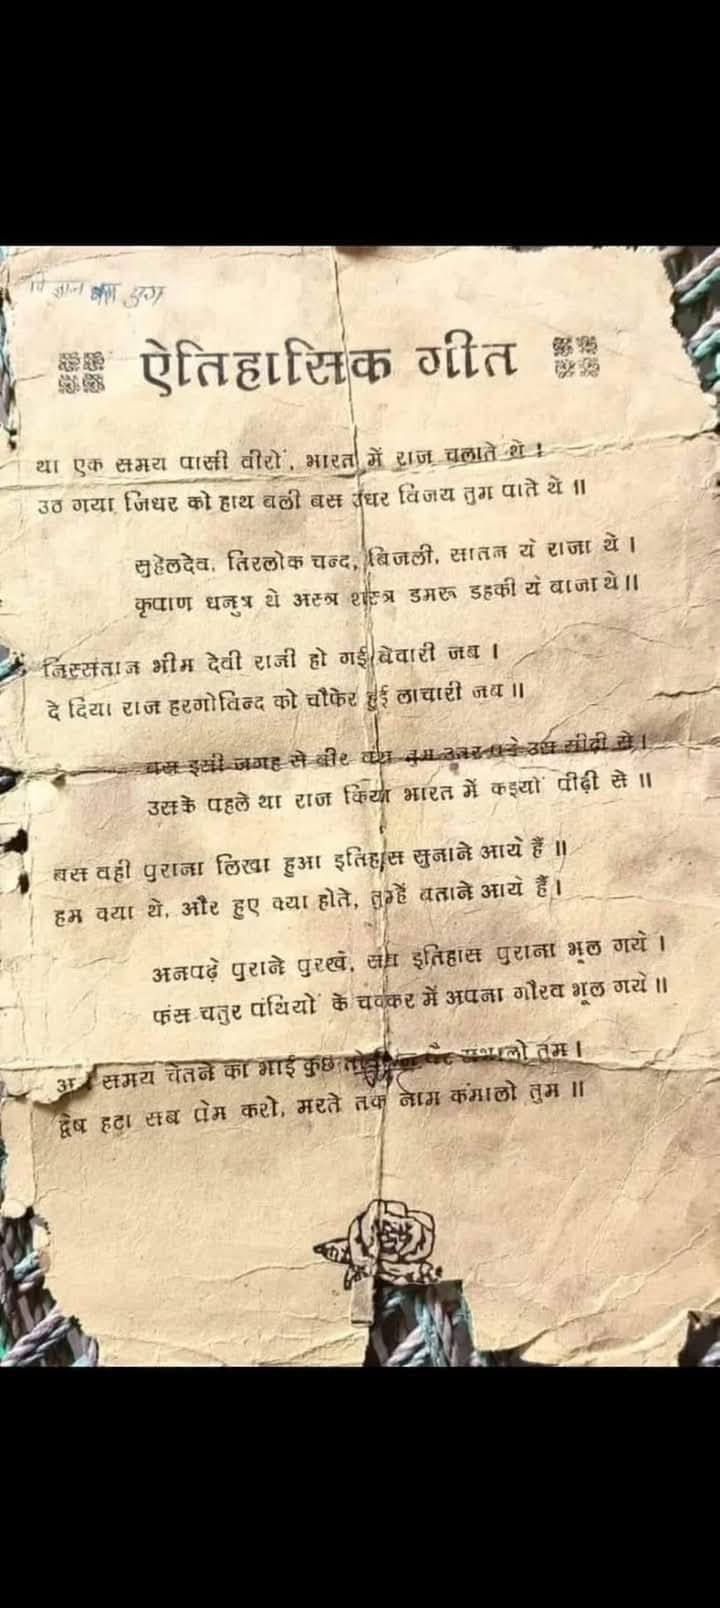 विज्ञान का युग
ऐतिहासिक गीत
था एक समय पासी वीरों, भारत में राज चलाते थे ।
उठ गया जिधर को हाथ बली बस उधर विजय तुम पाते थे ॥
सुहेलदेव, तिरलोक चन्द, बिजली, सातन यं राजा थे ।
कृपाण धनुत्र थे अस्त्र शस्त्र डमरू डहकी यं बाजा थे ॥
निस्संतान भीम देवी रानी हो गई बेवारी जब ।
दे दिया राज हरगोविन्द को चौफेर हुई लाचारी जब ॥
बस इसी जगह से वीर वंश तुम उतर पड़े उस सीढ़ी से ।
उसके पहले था राज किया भारत में कइयों पीढ़ी से ॥
बस वही पुराना लिखा हुआ इतिहास सुनाने आये हैं ॥
हम क्या थे, और हुए क्या होते, तुम्हें बताने आयं हैं ।
अनपढ़े पुराने पुरखे, सब इतिहास पुराना भूल गये ।
फंस चतुर पंथियों के चक्कर में अपना गौरव भूल गये ॥
समय चेतने का भाई कुछ तो संभालो तुम ।
द्वेष हटा सब प्रेम करो, मरते तक नाम कंमालो तुम ॥